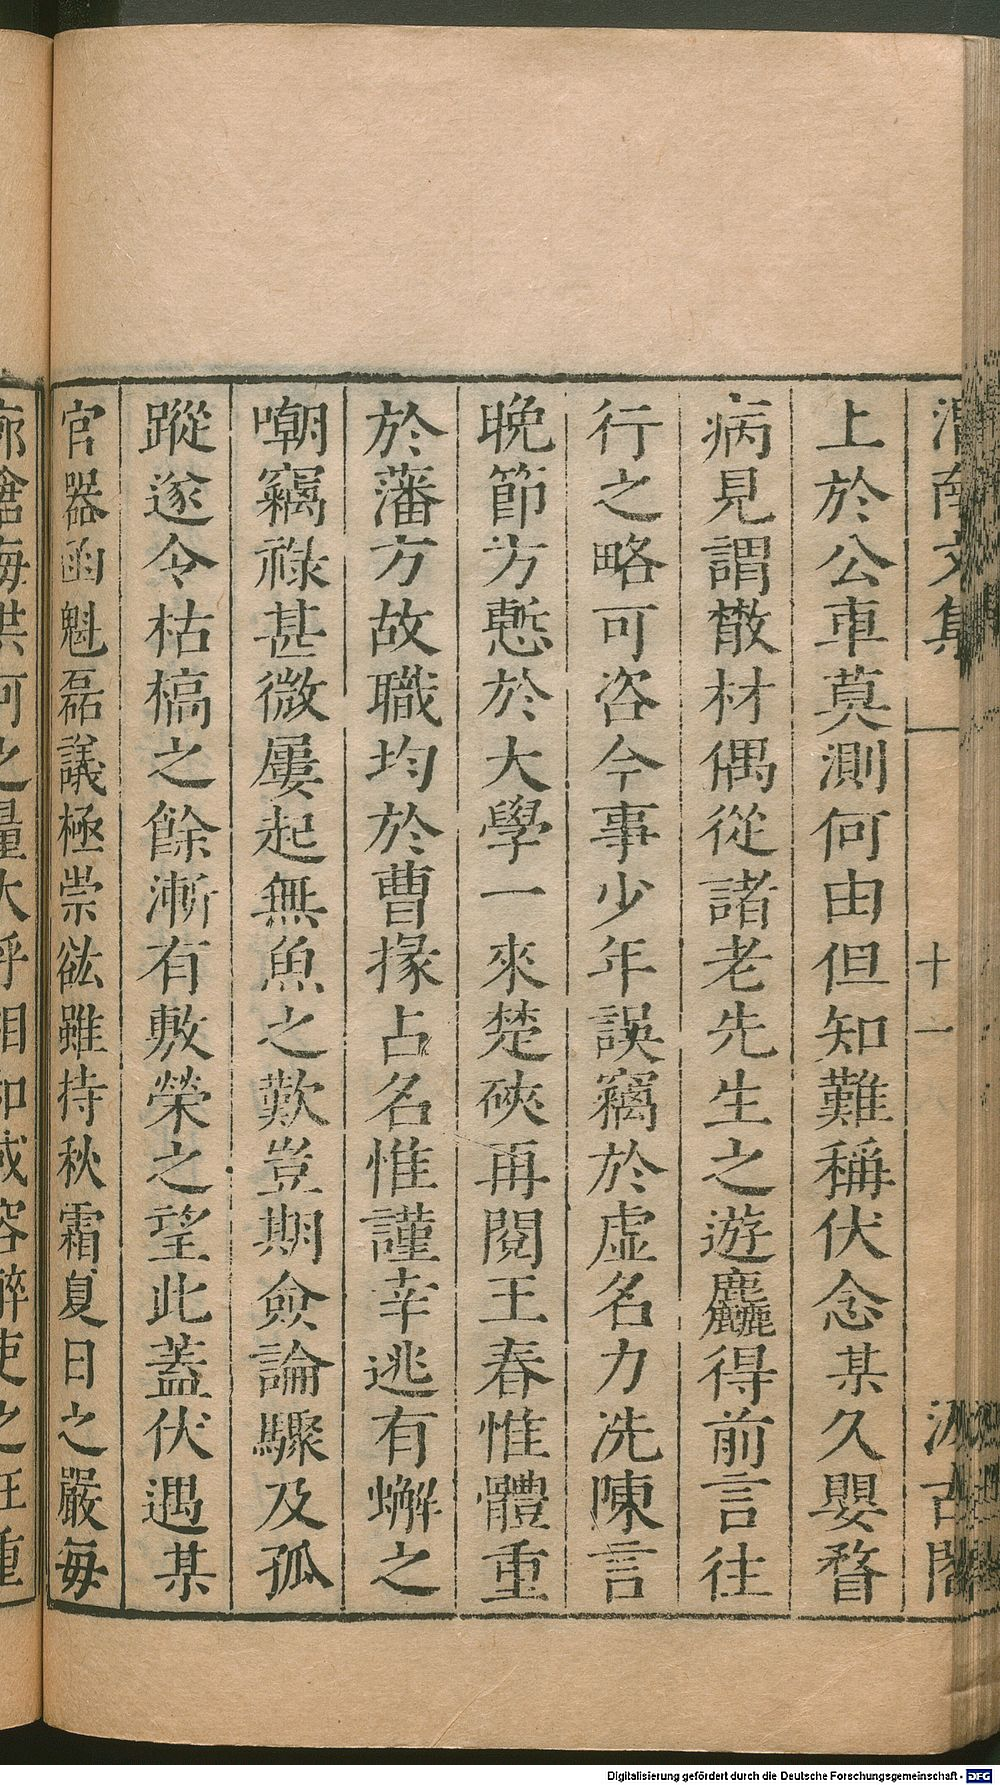 上於公車莫測何由但知難稱伏念某久嬰瞀
病見謂散材偶從諸老先生之遊麤得前言往
行之略可咨今事少年誤竊於虛名力洗陳言
晚節方慙於大學一來楚硤再閱王春惟體重
於藩方故職均於曹掾占名惟謹幸逃有蠏之
嘲竊祿甚微屢起無魚之歎豈期僉論驟及孤
蹤遂令枯槁之餘漸有敷榮之望此蓋伏遇某
官器函魁磊議極崇竑雖持秋霜夏日之嚴每
十一
Digitalisierung gefördert durch die Deutsche Forschungsgemeinschaft - DFG